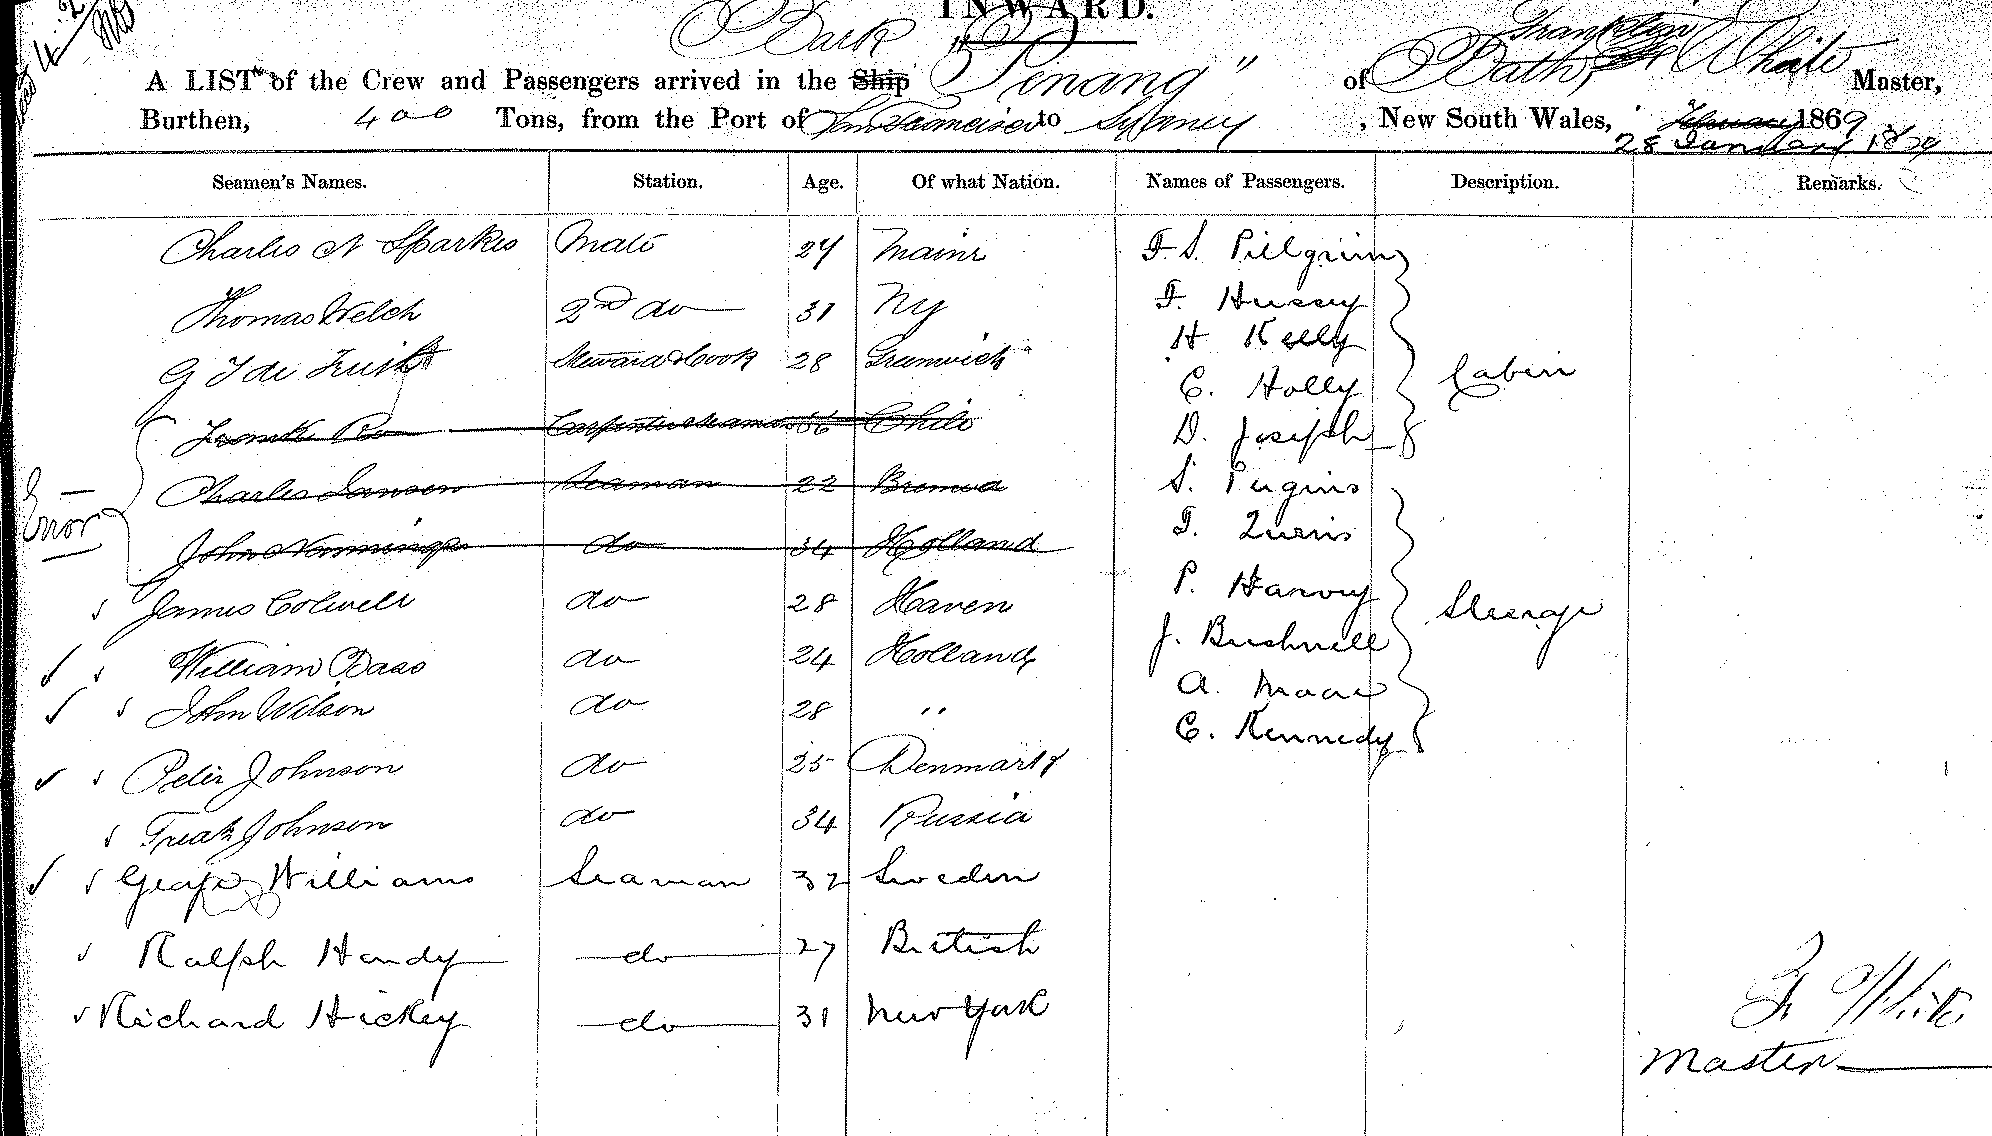 INWARD.
Bark
Franklin
A LIST of the Crew and Passengers arrived in the Ship "Penang" of Bath, White Master,
Burthen, 400 Tons, from the Port of San Francisco to Sydney, New South Wales, February 1869
28 January 1870
Seamen's Names. Station. Age. Of what Nation. Names of Passengers. Description. Remarks.
Charles A Sparkes Mate 27 Maine F. S. Pilgrim
Thomas Welch 2nd do 31 NY F. Hussey
H Kelly
G F de Steward & Cook 28 Greenwich Cabin
C. Holly
Carpenter & Seaman 36 Chile D. Joseph
Charles Jansen Seaman 22 S.
Error
John do 34 Holland
James Colwell do 28 Haven P. Harvey Steerage
William do 24 Holland J. Bushnell
John Wilson do 28 " A. Moore
C. Kennedy
Peter Johnson do 25 Denmark
Johnson do 34 Russia
George Williams Seaman 32 Sweden
Ralph Handy do 27 British
Richard Hickey do 31 New York
F White
Master